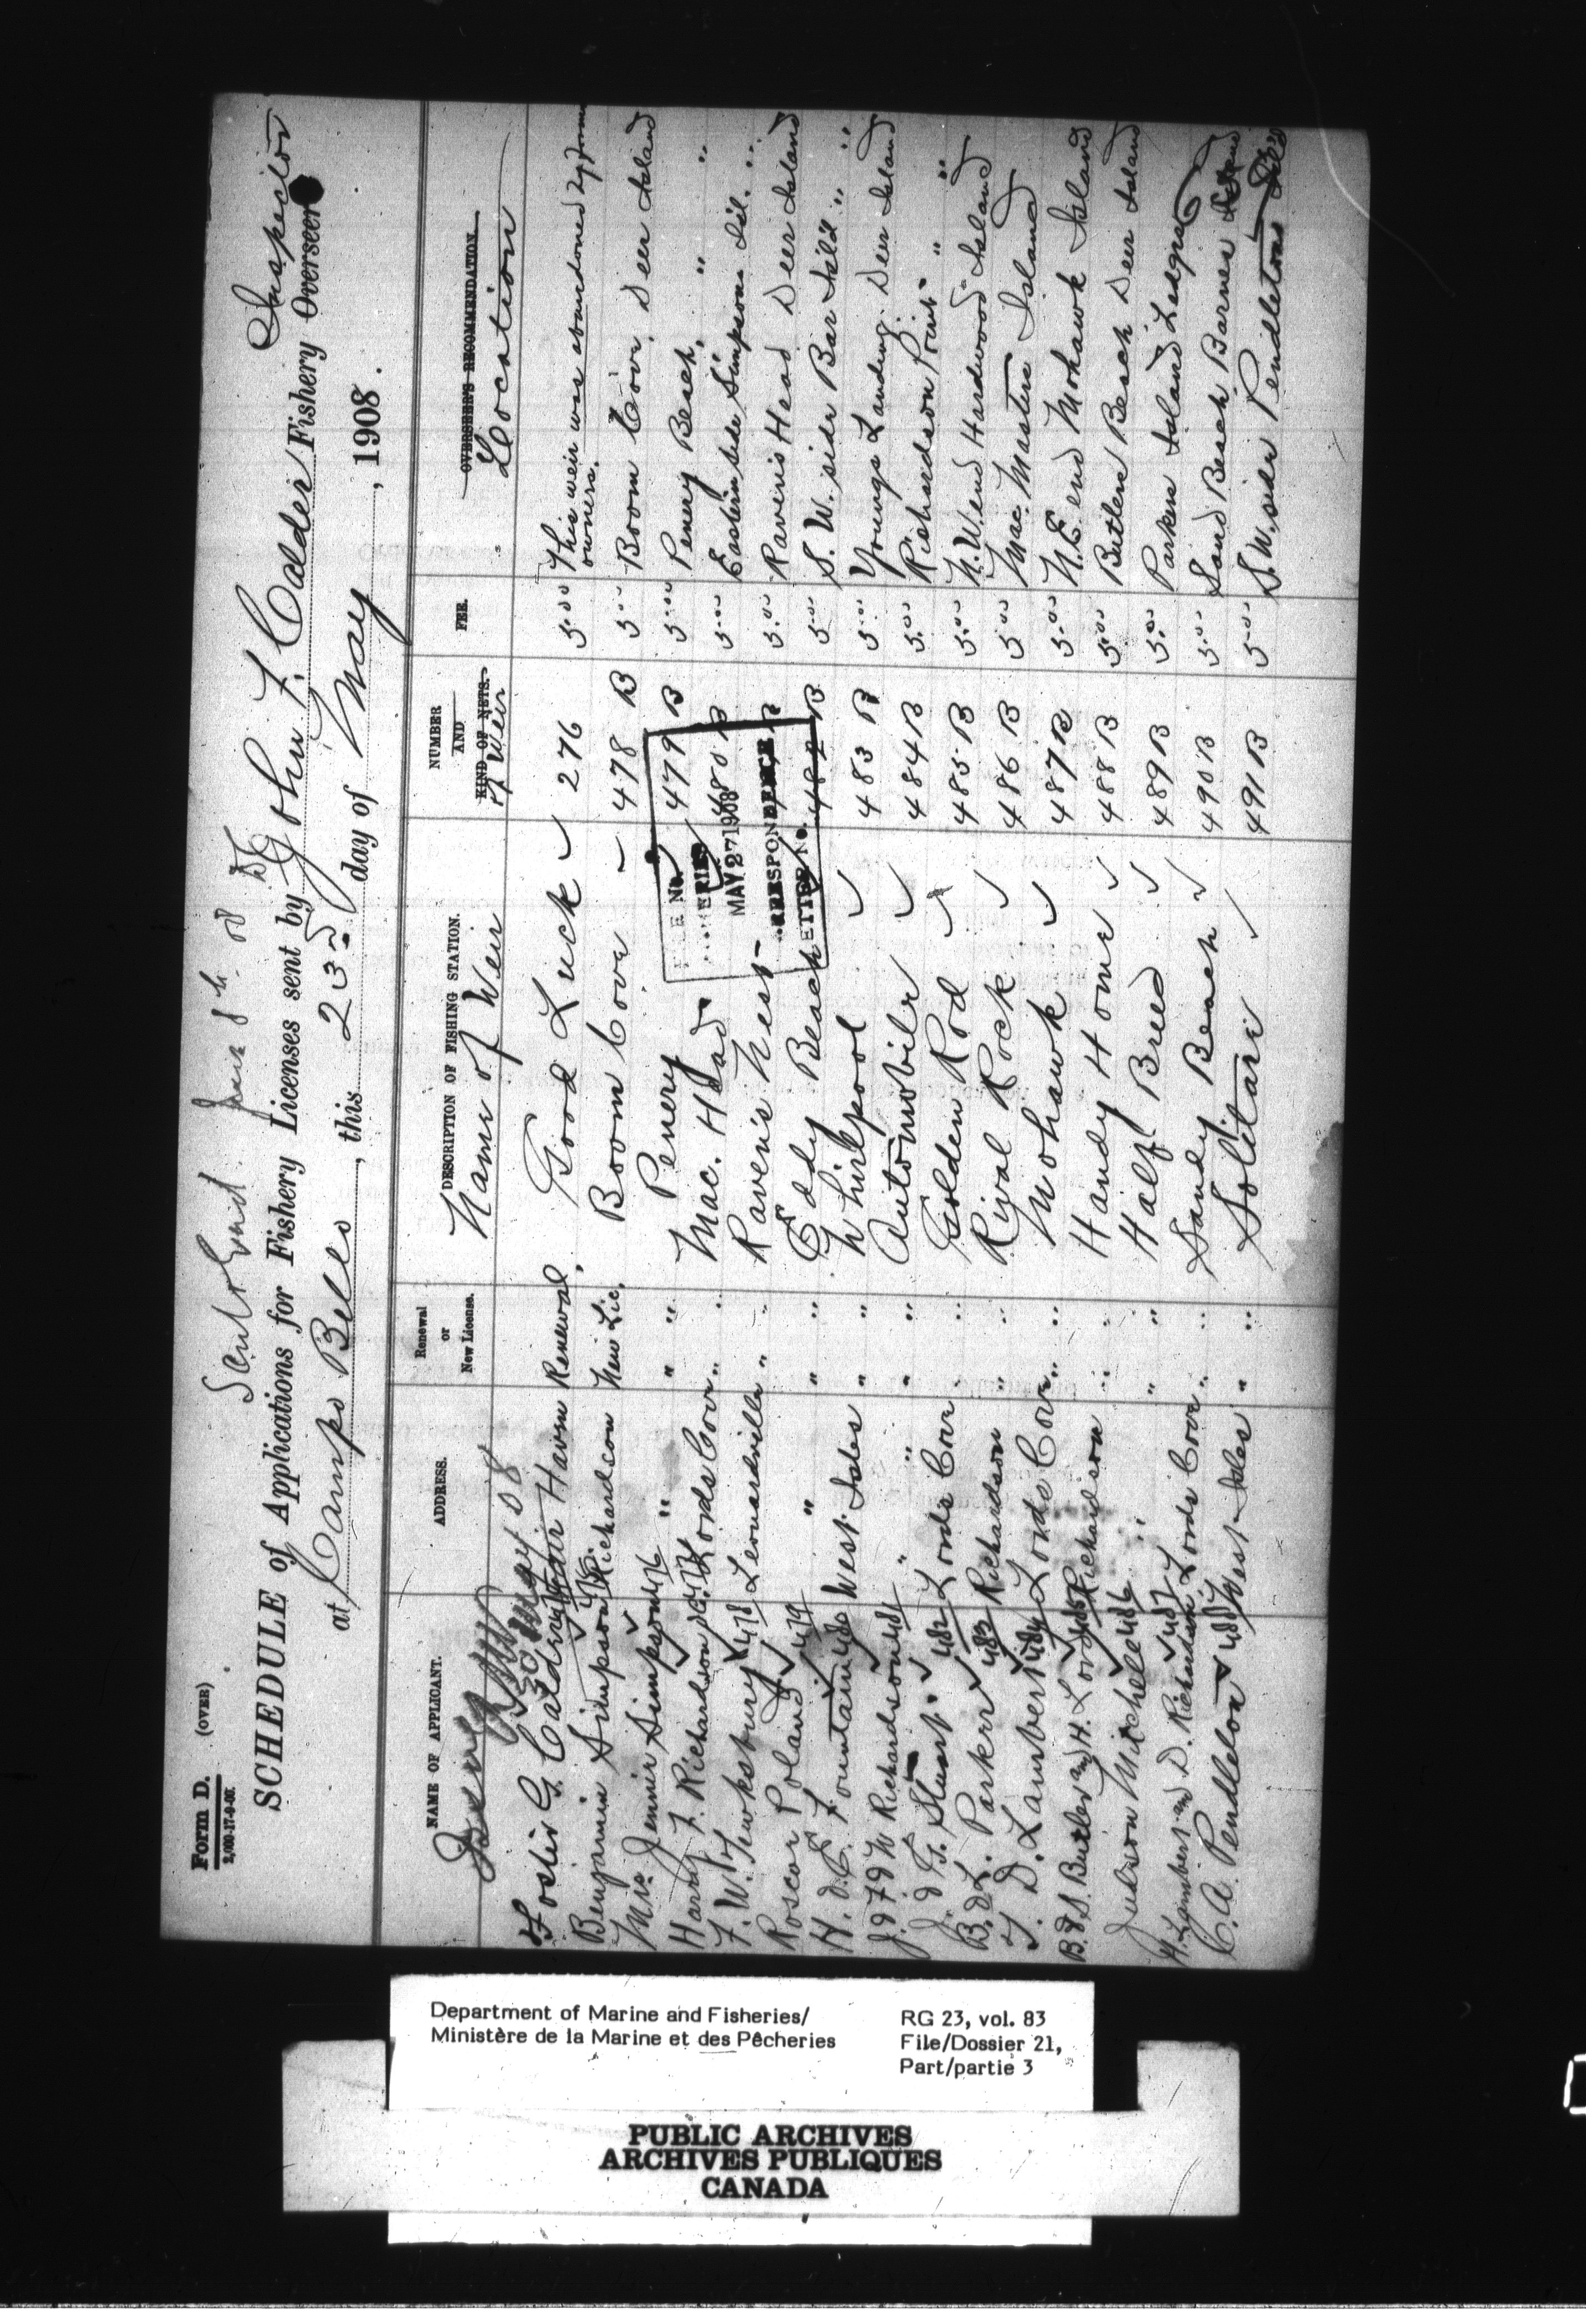 Form D. (OVER)
2,000-17-9-06.
Sent
SCHEDULE of Applications for Fishery Licenses sent by John F. Calder Fishery Overseer Inspector
at Campo Bello, this 23 day of May, 1908.
NAME OF APPLICANT. ADDRESS. Renewal or New License. DESCRIPTION OF FISHING STATION. NUMBER AND KIND OF NETS. FEE. OVERSEER'S RECOMMENDATION.
Name of Weir of Weir Location
Foster G. Calder Fair Haven Renewal. Good Luck 276 5.00 This weir was abandoned by former owners.
Benjamin Simpson 475 Richardson New Lic. Boom Cove 478 B 5.00 Boom Cove, Deer Island
Mrs. Jennie Simpson 476 " " " Penery 479 B 5.00 Penery Beach, " "
Harry F. Richardson 477 Lords Cove " " Mac. Head 480 B 5.00 Eastern side Simpson Isl. "
F. W. Tewksbury 478 Leonardville " " Raven's Nest B 5.00 Raven's Head Deer Island
Roscoe Poland 479 " " " Eddy Beach 482 B 5.00 S. W. side Bar Isl'd " "
H. & E. Fountain 480 West Isles " " Whirlpool 483 B 5.00 Youngs Landing Deer Island
J. & F & W Richardson 481 " " " " Automobile 484 B 5.00 Richardson Point " "
J. & G. Stuart 482 Lords Cove " " Golden Rod 485 B 5.00 N. W. end Hardwood Island
B. & L. Parker 483 Richardson " " Rival Rock 486 B 5.00 Mac. Masters Island
T. D. Lambert 484 Lords Cove " " Mohawk 487 B 5.00 N. E. end Mohawk Island
B. & S. Butler and H. Lord 485 Richardson " " Handy Home 488 B 5.00 Butlers Beach Deer Island
Judson Mitchell 486 " " " Half Breed 489 B 5.00 Parker Island Ledges
H. Lambert and D. Richardson 487 Lords Cove " " Sandy Beach 490 B 5.00 Sand Beach Barnes Island
C. A. Pendleton 488 West Isles " " Solitaire 491 B 5.00 S. W. side Pendletons Isl'd
MAY 27 1908
Department of Marine and Fisheries/
Ministère de la Marine et des Pêcheries
RG 23, vol. 83
File/Dossier 21,
Part/partie 3
PUBLIC ARCHIVES
ARCHIVES PUBLIQUES
CANADA